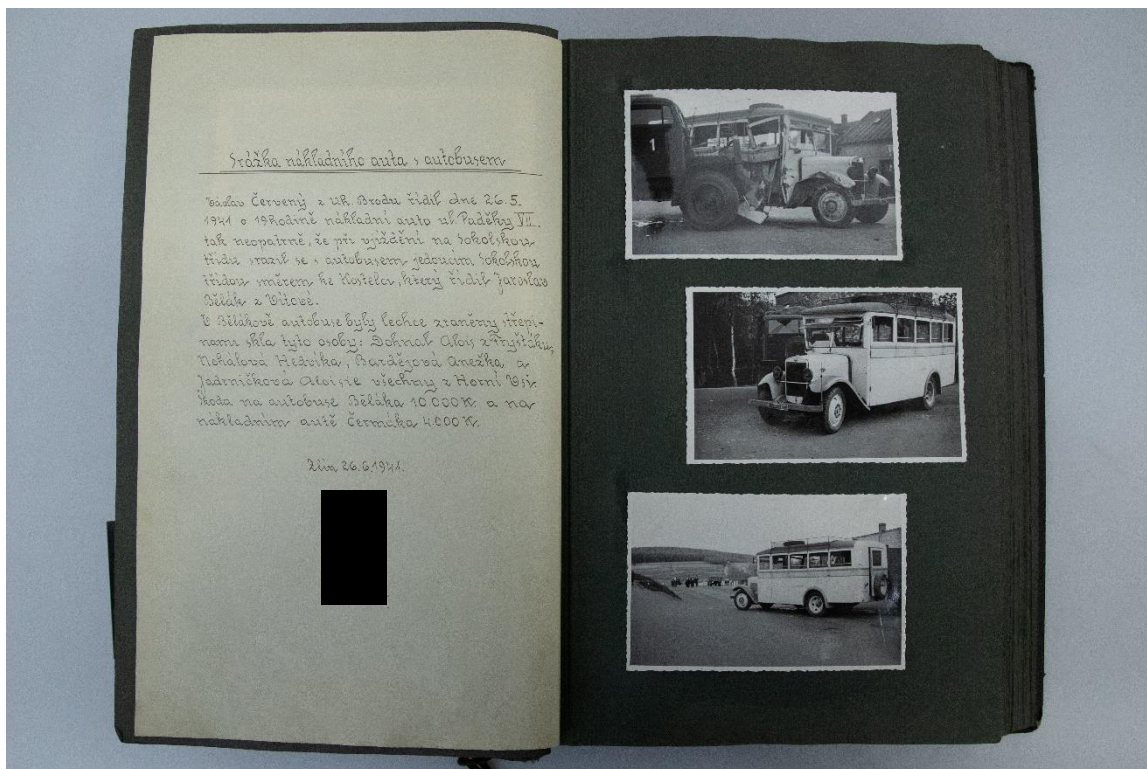 Srážka nákladního auta s autobusem
Václav Červený z Uh. Brodu řídil dne 26.5.
1941 o 19hodině nákladní auto ul. Padělky VII.
tak neopatrně, že při vjíždění na Sokolskou
třídu srazil se s autobusem jedoucím Sokolskou
třídou směrem ke Kostelci, který řídil Jaroslav
Bělák z Vítové.
V Bělákově autobuse byly lehce zraněny střepi-
nami skla tyto osoby: Dohnal Alois z Fryštáku,
Nehálová Hedvika, Bardězová Anežka, a
Jadrníčková Aloisie všechny z Horní Vsi.
Škoda na autobuse Běláka 10.000 K a na
nákladním autě Čermáka 4.000 K.
Zlín 26.6.1941.
1